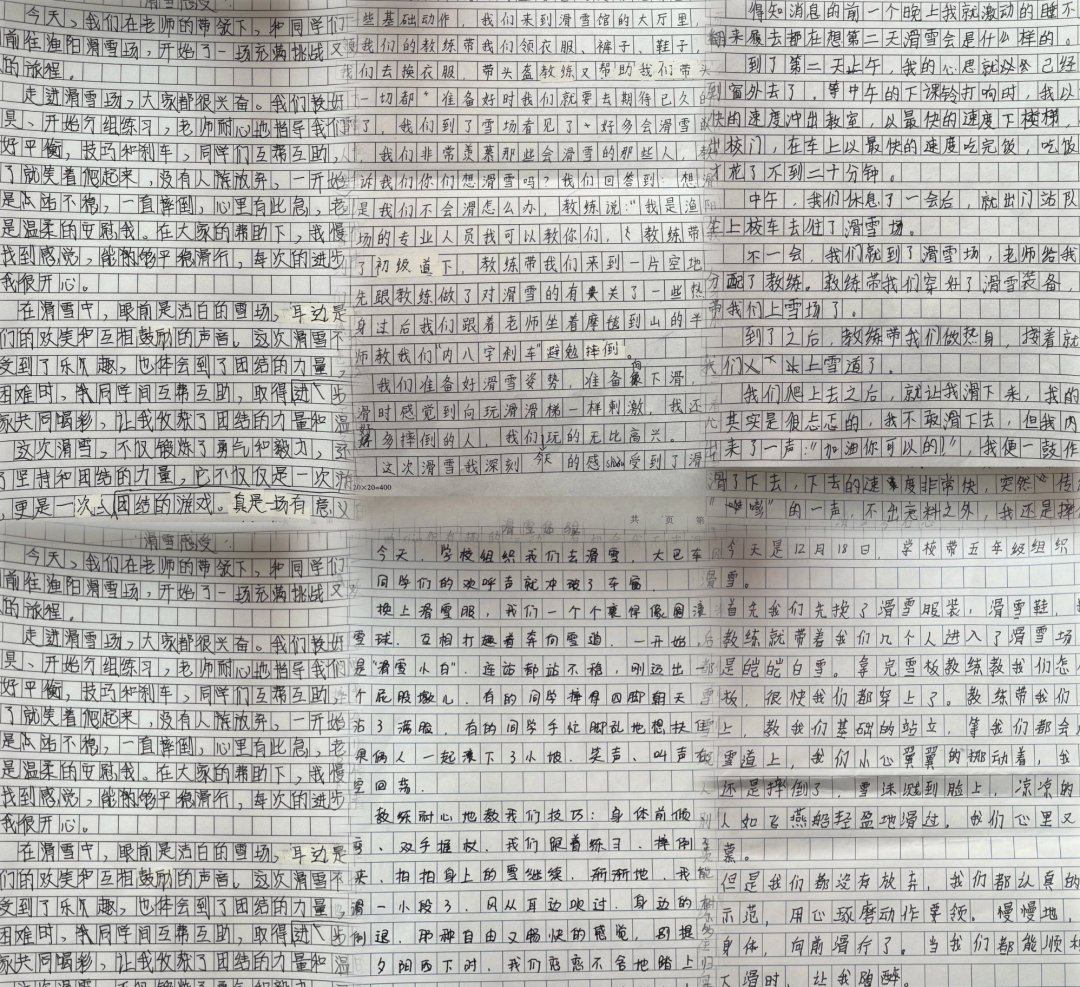 滑雪感受
今天,我们在老师的带领下,和同学们
前往渔阳滑雪场,开始了一场充满挑战又
的旅程。
走进滑雪场,大家都很兴奋。我们换好
具、开始分组练习,老师耐心地指导我们
好平衡,技巧和刹车,同学们互帮互助,
了就笑着爬起来,没有人想放弃。一开始
是站不稳,一直摔倒,心里有些急,老
是温柔的安慰我。在大家的帮助下,我慢
找到感觉,能够平稳滑行,每次的进步
我很开心。
在滑雪中,眼前是洁白的雪场,耳边是
们的欢笑和互相鼓励的声音。这次滑雪不
受到了乐趣,也体会到了团结的力量,
困难时,我同学间互帮互助,取得进步
家共同喝彩,让我收获了团结的力量和温
这次滑雪,不仅锻炼了勇气和毅力,还
了坚持和团结的力量,它不仅仅是一次
,更是一次团结的游戏。真是一场有意义
些基础动作,我们来到滑雪馆的大厅里,
我们的教练带我们领衣服、裤子、鞋子,
我们去换衣服,带头盔教练又帮助我们带
一切都准备好时我们就要去期待已久的
了,我们到了雪场看见了好多会滑雪
,我们非常羡慕那些会滑雪的那些人,教
诉我们你们想滑雪吗?我们回答到:想
是我们不会滑怎么办,教练说:“我是渔阳
场的专业人员我可以教你们,教练带
了初级道下,教练带我们来到一片空地
先跟教练做了对滑雪的有关了一些热
身过后我们跟着老师坐着摩毯到山的半
师教我们“内八字刹车”避勉摔倒。
我们准备好滑雪姿势,准备向下滑,
滑时感觉到向玩滑滑梯一样刺激,我还
好多摔倒的人,我们玩的无比高兴。
这次滑雪我深刻的感受到了滑
20×20=400
得知消息的前一个晚上我就激动的睡不
翻来覆去都在想第二天滑雪会是什么样的。
到了第二天上午,我的心思就以己经
到窗外去了。等中午的下课铃打响时,我以
快的速度冲出教室,以最快的速度下楼梯
出校门,在车上以最快的速度吃完饭,吃饭
才花了不到二十分钟。
中午,我们休息了一会后,就出门站队
坐上校车去往了滑雪场。
不一会,我们就到了滑雪场,老师给我
分配了教练。教练带我们穿好了滑雪装备,
带我们上雪场了。
到了之后,教练带我们做热身,接着就
我们上雪道了。
我们爬上去之后,就让我滑下来,我的
其实是很忐忑的,我不敢滑下去,但我内
来了一声:“加油你可以的!”,我便一鼓作
滑了下去,下去的速度非常快,突然传
“嘭”的一声,不出意料之外,我还是摔
共 页 第
滑雪感受
今天,我们在老师的带领下,和同学们
前往渔阳滑雪场,开始了一场充满挑战又
的旅程。
走进滑雪场,大家都很兴奋。我们换好
具、开始分组练习,老师耐心地指导我们
好平衡,技巧和刹车,同学们互帮互助,
了就笑着爬起来,没有人想放弃。一开始
是站不稳,一直摔倒,心里有些急,老
是温柔的安慰我。在大家的帮助下,我慢
找到感觉,能够平稳滑行,每次的进步
我很开心。
在滑雪中,眼前是洁白的雪场,耳边是
们的欢笑和互相鼓励的声音。这次滑雪不
受到了乐趣,也体会到了团结的力量,
困难时,我同学间互帮互助,取得进步
家共同喝彩,让我收获了团结的力量和温
滑雪体验
今天,学校组织我们去滑雪,大巴车
同学们的欢呼声就冲破了车窗。
换上滑雪服,我们一个个裹得像圆滚
雪球,互相打趣着奔向雪道。一开始,
是“滑雪小白”,连站都站不稳,刚迈出一
个屁股墩儿。有的同学摔得四脚朝天
沾了满脸,有的同学手忙脚乱地想扶
果俩人一起滚下了小坡,笑声、叫声在
空回荡。
教练耐心地教我们技巧:身体前倾
弯、双手握杖,我们跟着练习,摔倒
来,拍拍身上的雪继续,渐渐地,我能
滑一小段了,风从耳边吹过,身边的树
倒退,那种自由又畅快的感觉,别提
夕阳西下时,我们恋恋不舍地踏上归
今天是12月18日,学校带五年级组织
滑雪。
首先我们先换了滑雪服装,滑雪鞋,
教练就带着我们几个人进入了滑雪场
是皑皑白雪。拿完雪板教练教我们怎
板,很快我们都穿上了。教练带我们
上,教我们基础的站立,等我们都会
雪道上,我们小心翼翼的挪动着,我
还是摔倒了,雪沫溅到脸上,凉凉的
人如飞燕般轻盈地滑过,我们心里又
慕。
但是我们都没有放弃,我们都认真的
示范,用心琢磨动作要领。慢慢地,
身体,向前滑行了。当我们都能顺利
下滑时,让我陶醉。